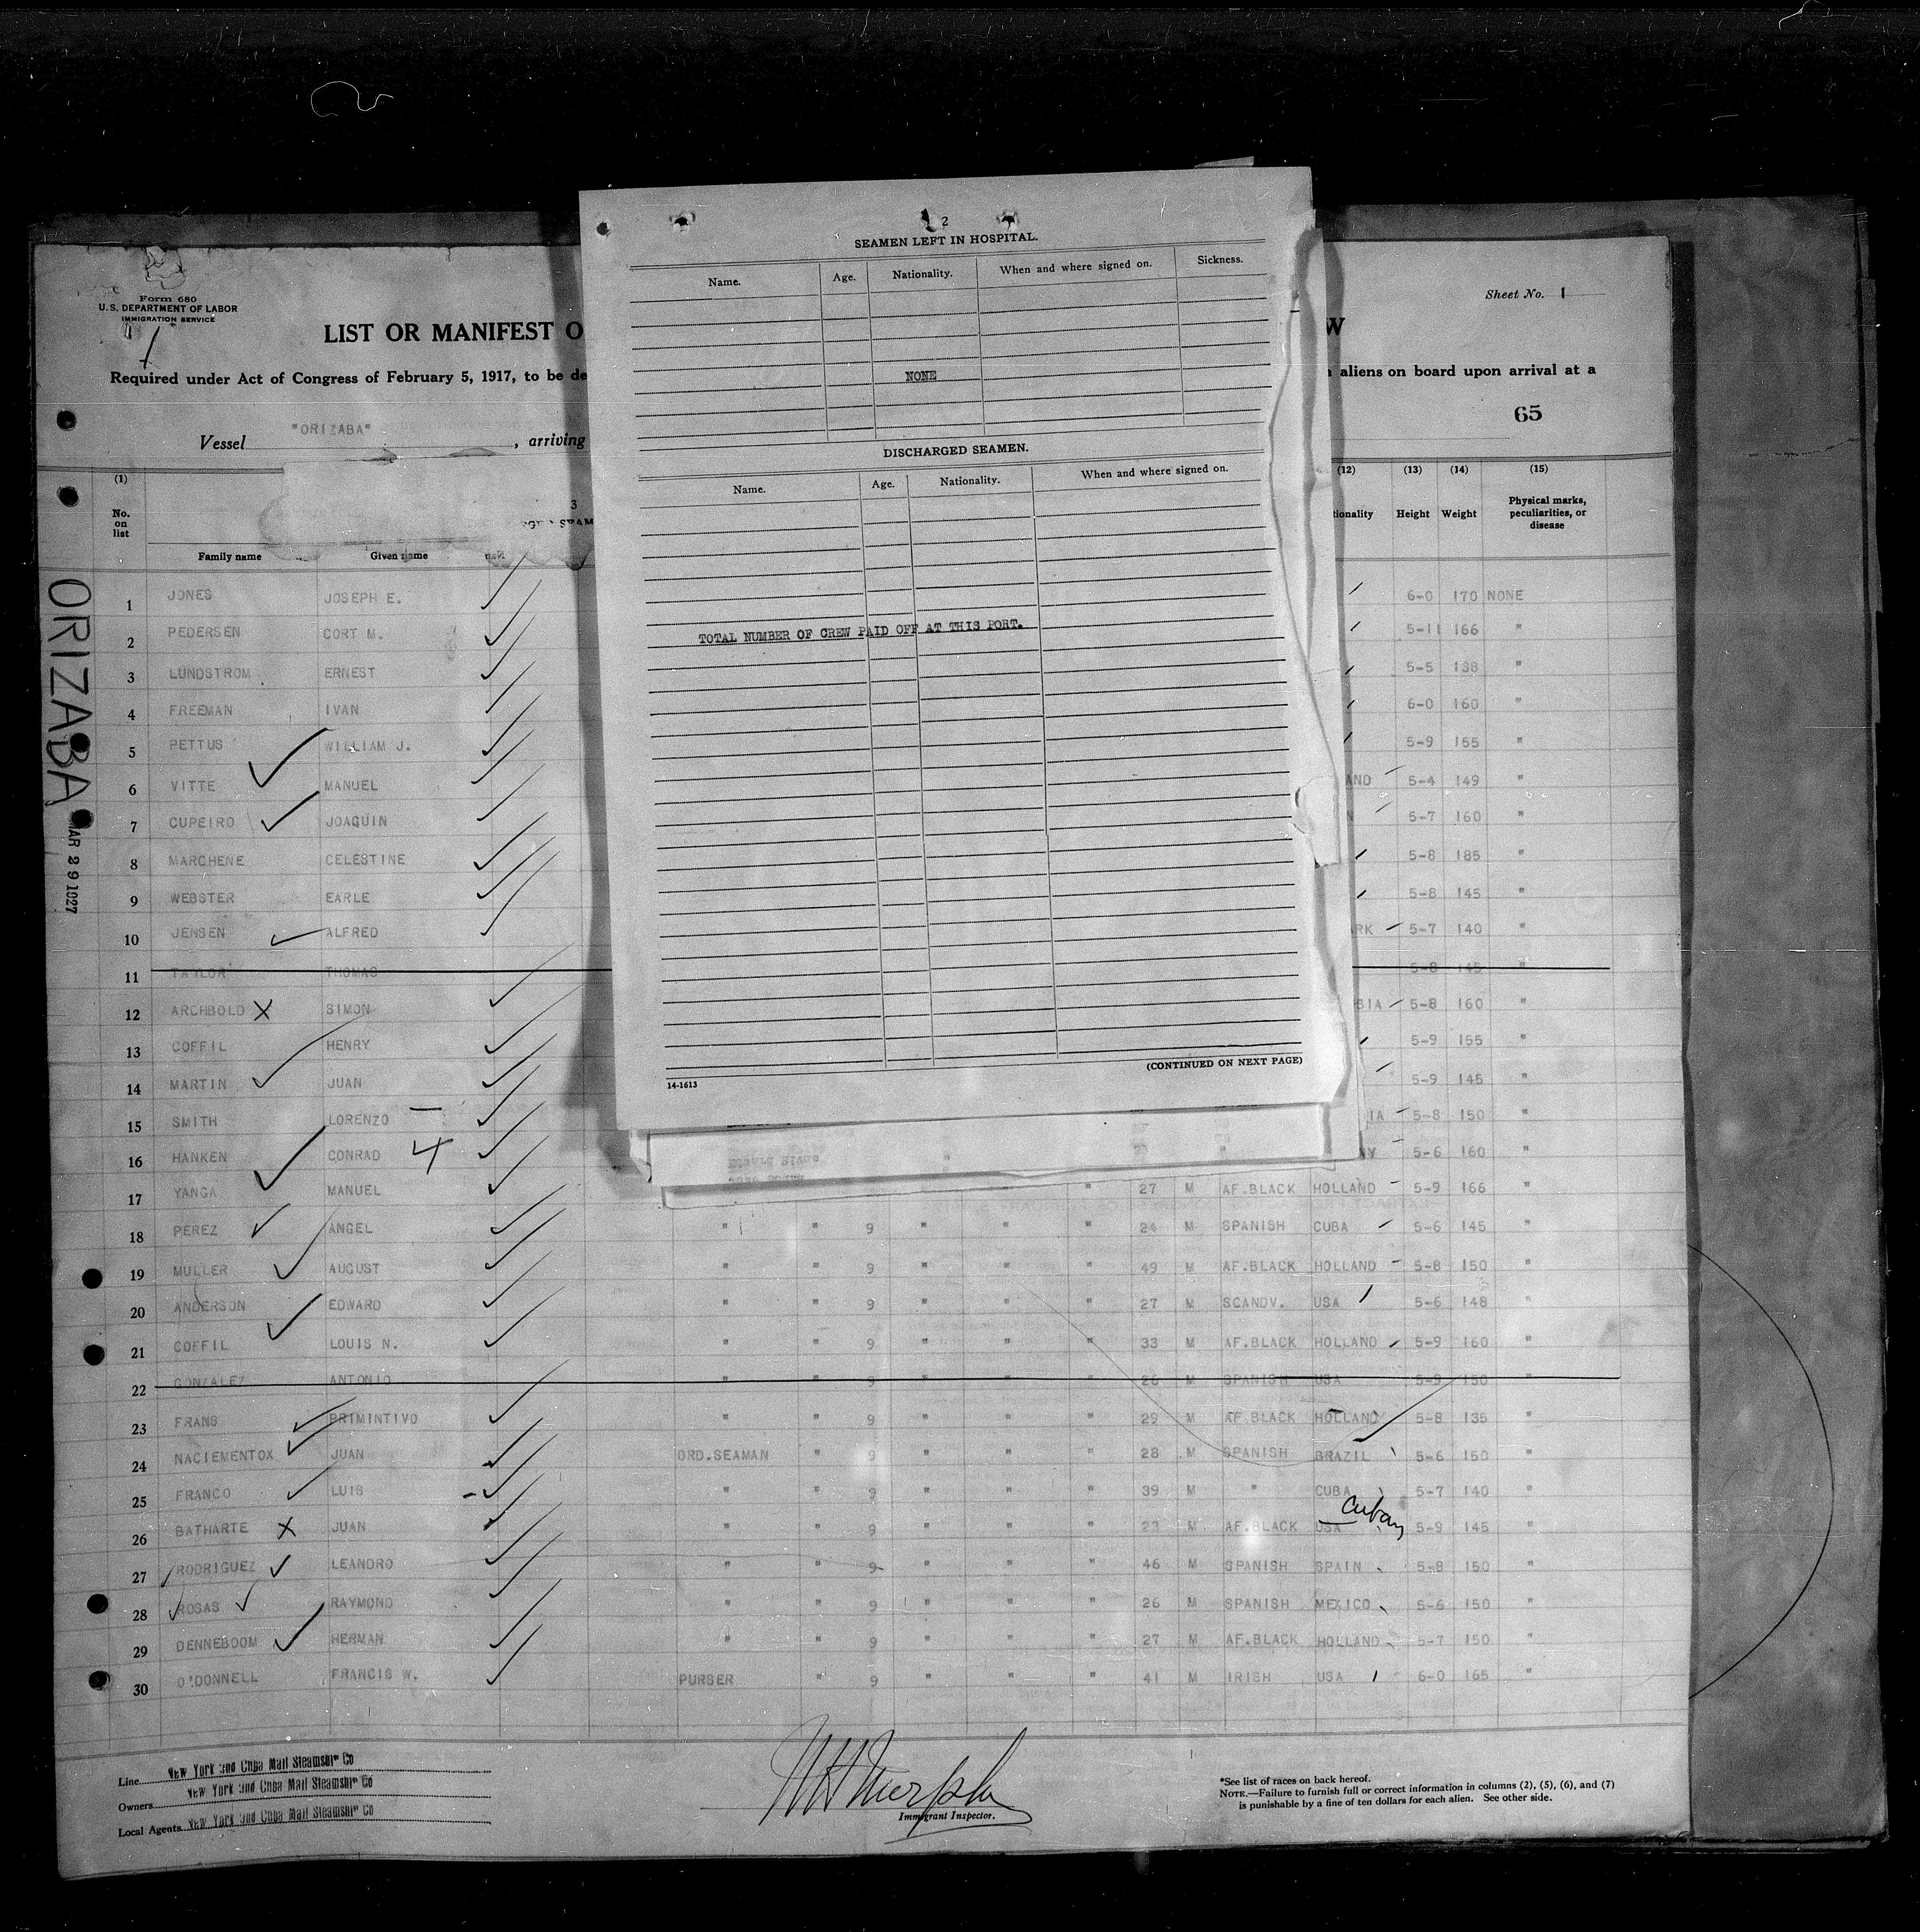 2
SEAMEN LEFT IN HOSPITAL.
Name. Age. Nationality. When and where signed on. Sickness.
NONE
DISCHARGED SEAMEN.
Name. Age. Nationality. When and where signed on.
TOTAL NUMBER OF CREW PAID OFF AT THIS PORT.
(CONTINUED ON NEXT PAGE)
14-1613
Form 680
U.S. DEPARTMENT OF LABOR
IMMIGRATION SERVICE
Sheet No. 1
LIST OR MANIFEST O W
Required under Act of Congress of February 5, 1917, to be de aliens on board upon arrival at a
65
Vessel "ORIZABA", arriving
(1) (12) (13) (14) (15)
3
No. on list Family name Given name Height Weight Physical marks, peculiarities, or disease
ORIZABA
MAR 29 1927
1 JONES JOSEPH E. 6-0 170 NONE
2 PEDERSEN CORT M. 5-11 166 "
3 LUNDSTROM ERNEST 5-5 138 "
4 FREEMAN IVAN 6-0 160 "
5 PETTUS WILLIAM J. 5-9 155 "
6 VITTE MANUEL AND 5-4 149 "
7 CUPEIRO JOAQUIN N 5-7 160 "
8 MARCHENE CELESTINE 5-8 185 "
9 WEBSTER EARLE 5-8 145 "
10 JENSEN ALFRED RK 5-7 140 "
11 TAYLOR THOMAS 5-8 145 "
12 ARCHBOLD X SIMON BIA 5-8 160 "
13 COFFIL HENRY 5-9 155 "
14 MARTIN JUAN 5-9 145 "
15 SMITH LORENZO IA 5-8 150 "
16 HANKEN CONRAD 4 NY 5-6 160 "
17 YANGA MANUEL " 27 M AF.BLACK HOLLAND 5-9 166 "
18 PEREZ ANGEL " " 9 " " " 24 M SPANISH CUBA 5-6 145 "
19 MULLER AUGUST " " 9 " " " 49 M AF.BLACK HOLLAND 5-8 150 "
20 ANDERSON EDWARD " " 9 " " " 27 M SCANDV. USA 5-6 148 "
21 COFFIL LOUIS N. " " 9 " " " 33 M AF.BLACK HOLLAND 5-9 160 "
22 GONZALEZ ANTONIO " " 9 " " " 26 M SPANISH USA 5-9 150 "
23 FRANS BRIMINTIVO " " 9 " " " 29 M AF.BLACK HOLLAND 5-8 135 "
24 NACIEMENTOX JUAN ORD.SEAMAN " 9 " " " 28 M SPANISH BRAZIL 5-6 150 "
25 FRANCO LUIS " " 9 " " " 39 M " CUBA 5-7 140 "
Cuban
26 BATHARTE X JUAN " " 9 " " " 23 M AF.BLACK USA 5-9 145 "
27 RODRIGUEZ LEANDRO " " 9 " " " 46 M SPANISH SPAIN 5-8 150 "
28 ROSAS RAYMOND " " 9 " " " 26 M SPANISH MEXICO 5-6 150 "
29 DENNEBOOM HERMAN " " 9 " " " 27 M AF.BLACK HOLLAND 5-7 150 "
30 O'DONNELL FRANCIS W. PURSER " 9 " " " 41 M IRISH USA 6-0 165 "
Line New York and Cuba Mail Steamship Co
Owners New York and Cuba Mail Steamship Co
Local Agents New York and Cuba Mail Steamship Co
Murphy
Immigrant Inspector.
*See list of races on back hereof.
NOTE.—Failure to furnish full or correct information in columns (2), (5), (6), and (7)
is punishable by a fine of ten dollars for each alien. See other side.